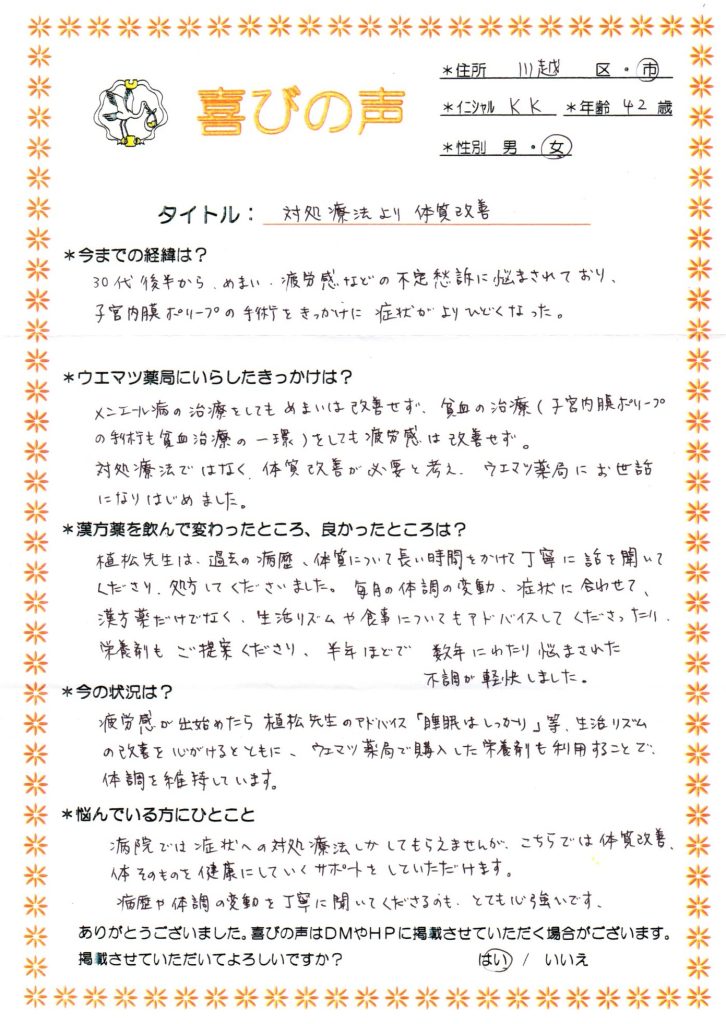 喜びの声
*住所 川越 区・市
*イニシャル KK *年齢 42 歳
*性別 男・女
タイトル: 対処療法より 体質改善
*今までの経緯は?
30代後半から、めまい・疲労感などの不定愁訴に悩まされており、
子宮内膜ポリープの手術をきっかけに 症状がよりひどくなった。
*ウエマツ薬局にいらしたきっかけは?
メニエール病の治療をしても めまいは改善せず、貧血の治療(子宮内膜ポリープ
の手術も貧血治療の一環)をしても疲労感は改善せず。
対処療法ではなく、体質改善が必要と考え、ウエマツ薬局にお世話
になりはじめました。
*漢方薬を飲んで変わったところ、良かったところは?
植松先生は、過去の病歴、体質について長い時間をかけて丁寧に話を聞いて
くださり、処方してくださいました。毎月の体調の変動、症状に合わせて、
漢方薬だけでなく、生活リズムや食事についてもアドバイスしてくださったり、
栄養剤もご提案くださり、半年ほどで 数年にわたり悩まされた
不調が軽快しました。
*今の状況は?
疲労感が出始めたら植松先生のアドバイス「睡眠はしっかり」等、生活リズム
の改善を心がけるとともに、ウエマツ薬局で購入した栄養剤も利用することで、
体調を維持しています。
*悩んでいる方にひとこと
病院では症状への対処療法しかしてもらえませんが、こちらでは体質改善、
体そのものを健康にしていくサポートをしていただけます。
病歴や体調の変動を丁寧に聞いてくださるのも、とても心強いです。
ありがとうございました。喜びの声はDMやHPに掲載させていただく場合がございます。
掲載させていただいてよろしいですか? はい / いいえ